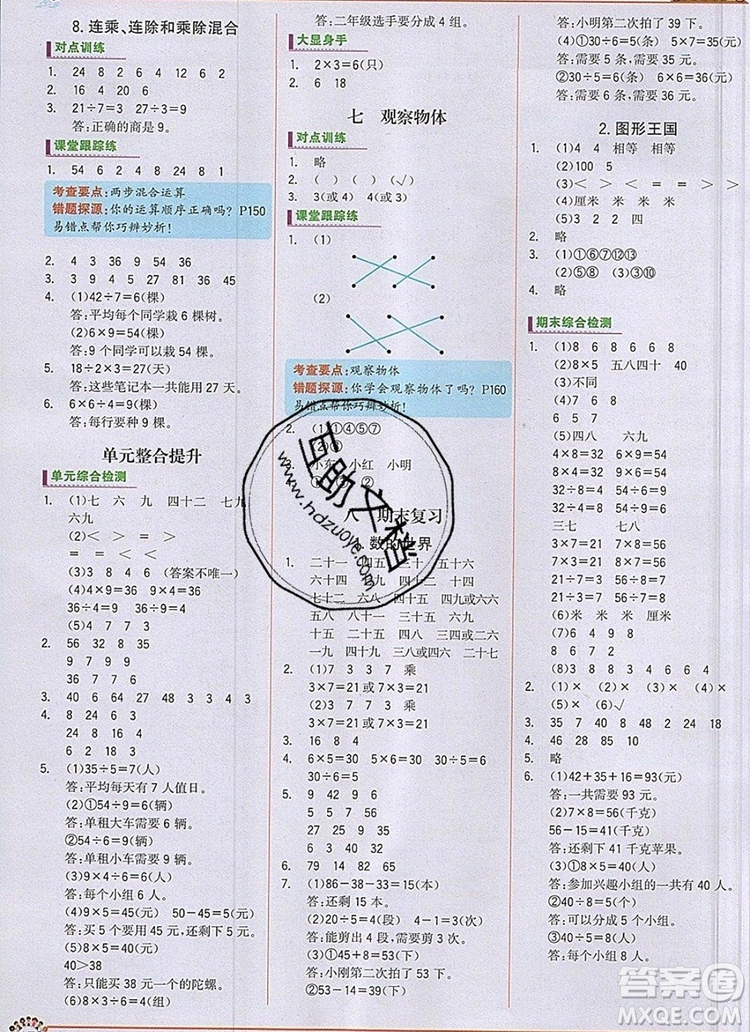 8. 连乘、连除和乘除混合
对点训练
1. 24 24 8 2 6 4 12 6 2
2. 16 4 20 6
3. 21÷7=3 27÷3=9
答:正确的商是9。
课堂跟踪练
1. 54 6 2 4 8 24 8 1
考查要点:两步混合运算
错题探源:你的运算顺序正确吗? P150
易错点帮你巧辨妙析!
2. 4 3 36 9 54 36
3. 9 27 48 7 81 36 45
4. (1)42÷7=6(棵)
答:平均每个同学栽6棵树。
(2)6×9=54(棵)
答:9个同学可以栽54棵。
5. 18÷2×3=27(天)
答:这些笔记本一共能用27天。
6. 6×6÷4=9(棵)
答:每行要种9棵。
单元整合提升
单元综合检测
1. (1)七 六 九 四十二 七九
六九
(2)> < = >
= > = <
(3)3 8 4 6 (答案不唯一)
(4)9×4=36 4×9=36
36÷4=9 36÷9=4
2. 56 32 8 35
9 9 7 7
36 7 7 6
3. 40 6 64 27 48 3 3 4 3
4. 8 24 6 3
24 8 16 4
9 54 9 6
5. (1)35÷5=7(人)
答:平均每天7人值日。
(2)①54÷9=6(辆)
答:单租大车需要6辆。
②54÷6=9(辆)
答:单租小车需要9辆。
(3)9×4÷6=6(人)
答:每个小组6人。
(4)9×5=45(元) 50-45=5(元)
答:买5个要用45元,还剩下5元。
(5)8×5=40(元)
40>38
答:只能买38元一个的陀螺。
答:二年级选手要分成4组。
大显身手
1. 2×3=6(只)
2. 6 18
七 观察物体
对点训练
1. 略
2. ( ) ( ) ( ) (√)
3. 3(或4) 4(或3)
课堂跟踪练
1. (1)
(2)
考查要点:观察物体
错题探源:你学会观察物体了吗? P160
易错点帮你巧辨妙析!
2. (1)①④⑤⑦
小东 小红 小明
八 期末复习
1. 二十一 四五 三五 五十六
六十四 四九 三九 四八
七十二 六八 四五 四九或六六
五八 八九 一六或二三
十六 二十五 四八或五六
一九 四九 二四或一八 二十七
2. (1)7 3 3 7 乘
3×7=21或7×3=21
(2)3 7 7 3 乘
3×7=21或7×3=21
3. 16 8 4 4
4. 5×6=30 6×5=30
30÷5=6 30÷6=5
5. 9 42 8 32
5 5 7 56
8 7 9 7
6. 79 14 82 65
7. (1)86-38-33=15(本)
答:还剩15本。
(2)20÷5=4(段) 4-1=3(次)
答:能剪出4段,需要剪3次。
(3)①86-33=53(下)
答:小刚第二次拍了53下。
②53-14=39(下)
答:小明第二次拍了39下。
(4)①30÷6=5(条) 5×7=35(元)
答:需要5条,需要35元。
②30÷5=6(条) 6×6=36(元)
答:需要6条,需要36元。
2. 图形王国
1. (1)4 4 相等 相等
(2)100 5
(3)> < > < = >
(4)厘米 米 米 厘米
(5)5 6
2. 略
3. (1)①⑥⑦⑨ ③④⑪⑫
(2)②⑤⑧ (3)②⑩
4. 略
期末综合检测
1. (1)8 6 8 6 6 8
(2)8×5 五八四十 40
(3)不同
(4)8 8 7 7
6 5 7
(5)四八 六九
4×8=32 6×9=54
8×4=32 9×6=54
32÷8=4 54÷6=9
32÷4=8 54÷9=6
三七 七八
3×7=21 7×8=56
7×3=21 8×7=56
21÷3=7 56÷7=8
21÷7=3 56÷8=7
(6)米 米 米 厘米
(7)< > = < > <
2. (1)× (2)× (3)× (4)×
(5)× (6)√
3. 35 7 40 8 10 48 8 18
4. 48 24 63 81
5. 略
6. (1)42+16+35=93(元)
答:一共需要93元。
(2)7×8=56(千克)
56-15=41(千克)
答:还剩下41千克苹果。
(3)①8×5=40(人)
答:参加兴趣小组的共有40人。
②40÷5=8(个)
答:可以分成8个小组。
③40÷8=5(人)
答:每个小组5人。
互助文档
www.hdzuoye.com
答案圈
MXQE.COM